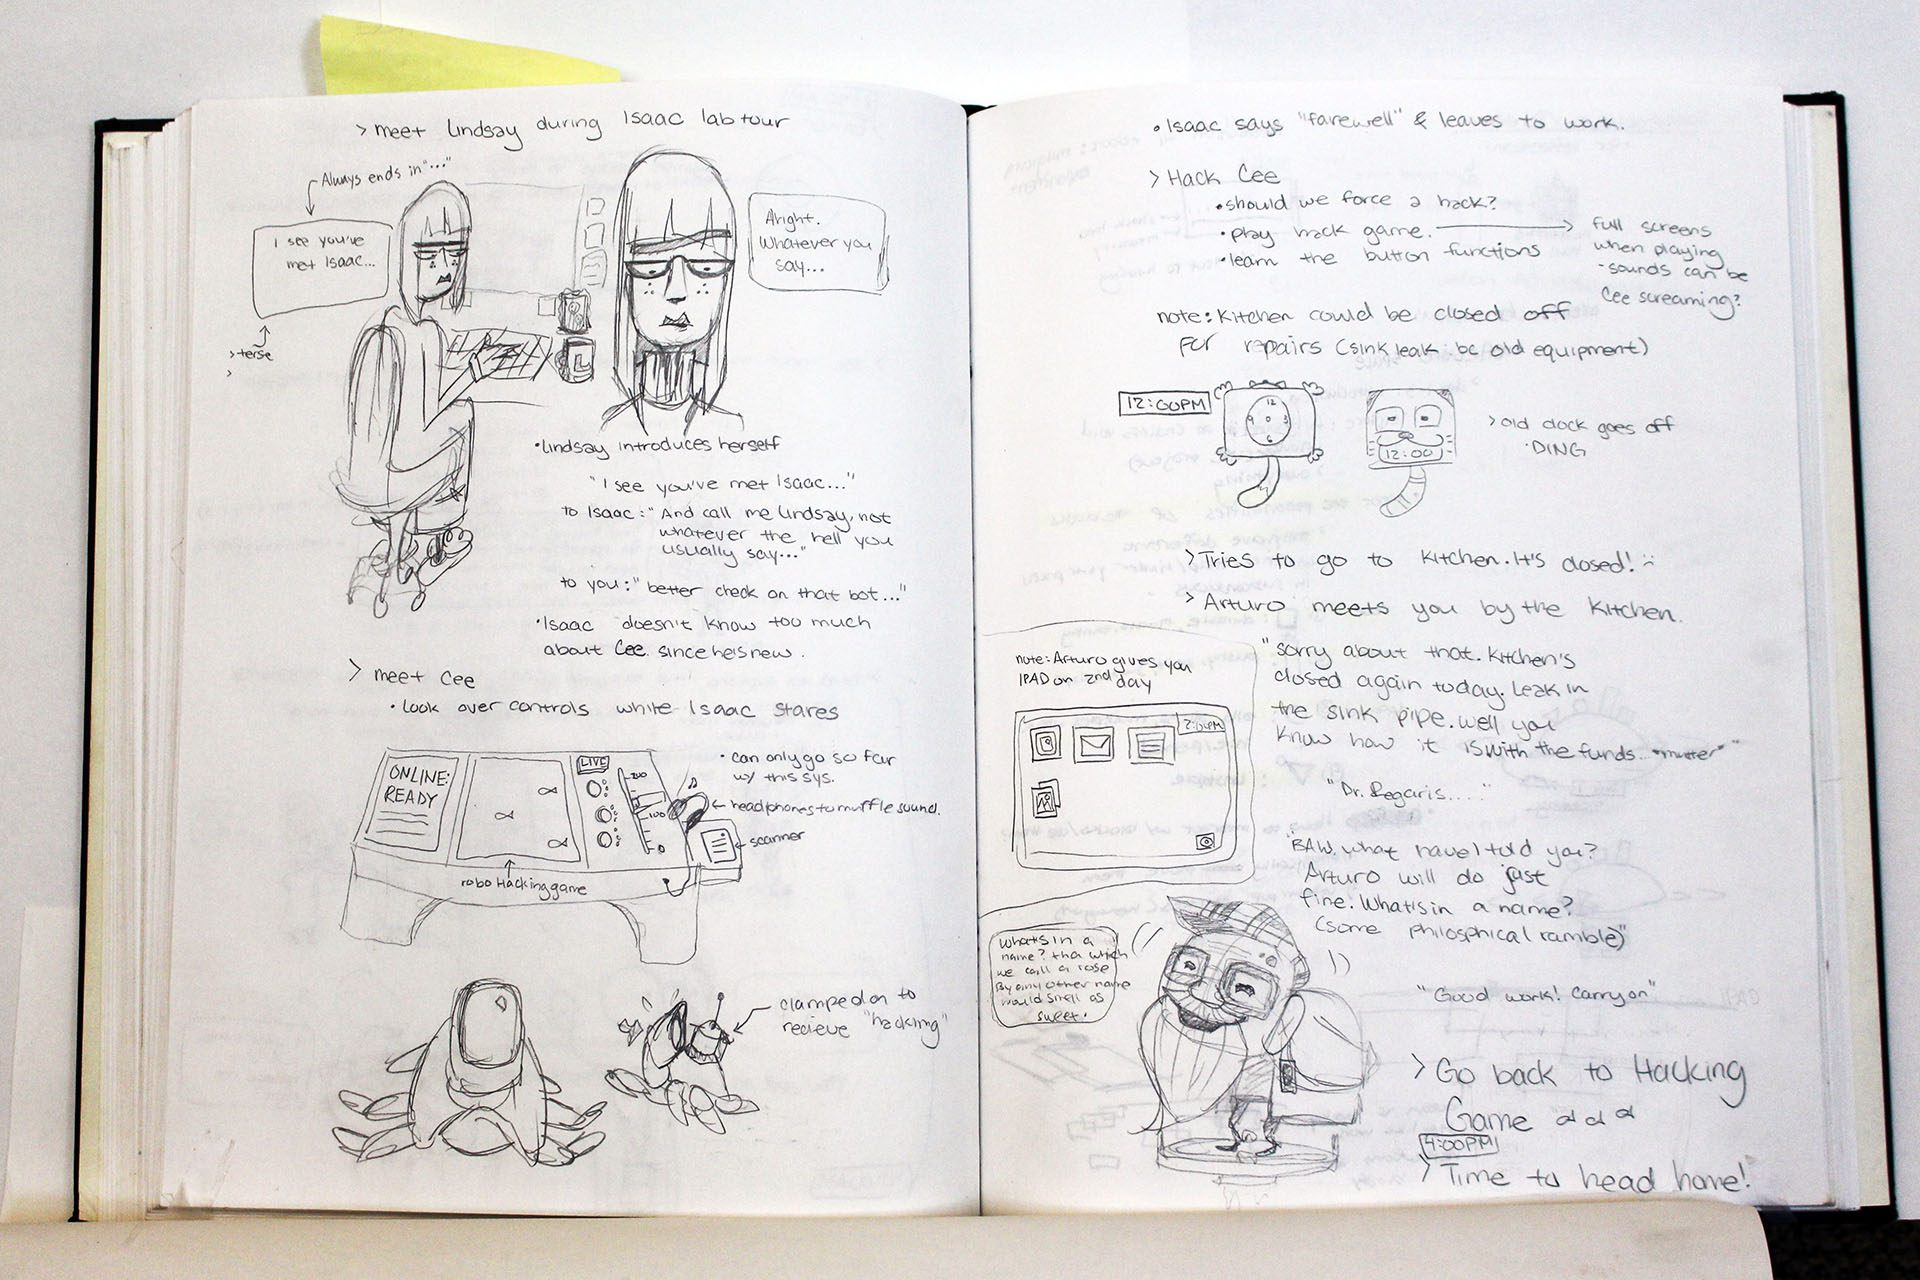 > meet Lindsay during Isaac lab tour
Always ends in "..."
I see you've
met Isaac...
> terse
>
Alright.
Whatever you
say...
• Lindsay introduces herself
"I see you've met Isaac..."
to Isaac: "And call me Lindsay, not
whatever the hell you
usually say..."
to you: "better check on that bot..."
• Isaac doesn't know too much
about Cee. since he is new.
> meet Cee
• Look over controls while Isaac stares
ONLINE:
READY
LIVE
200
100
0
• can only go so far
w/ this sys.
headphones to muffle sound.
scanner
robo Hacking game
clamped on to
recieve "hacking"
• Isaac says "farewell" & leaves to work.
> Hack Cee
• should we force a hack?
• play hack game.
• learn the button functions
full screens
when playing
- sounds can be
Cee screaming?
note: Kitchen could be closed off
for repairs (sink leak bc old equipment)
12:00PM
12
3
6
12:00
> old clock goes off
• DING
> Tries to go to Kitchen. It's closed! :(
> Arturo meets you by the Kitchen.
"sorry about that. Kitchen's
closed again today. Leak in
the sink pipe. Well you
know how it is with the funds... *mutter*"
note: Arturo gives you
IPAD on 2nd day
2:04PM
"Dr. Regaris...."
"BAW, what have I told you?
Arturo will do just
fine. What is in a name?
(some philosphical ramble)"
What's in a
name? tha which
we call a rose
By any other name
would smell as
sweet.
"Good work! Carry on"
> Go back to Hacking
Game
4:00PM
> Time to head home!